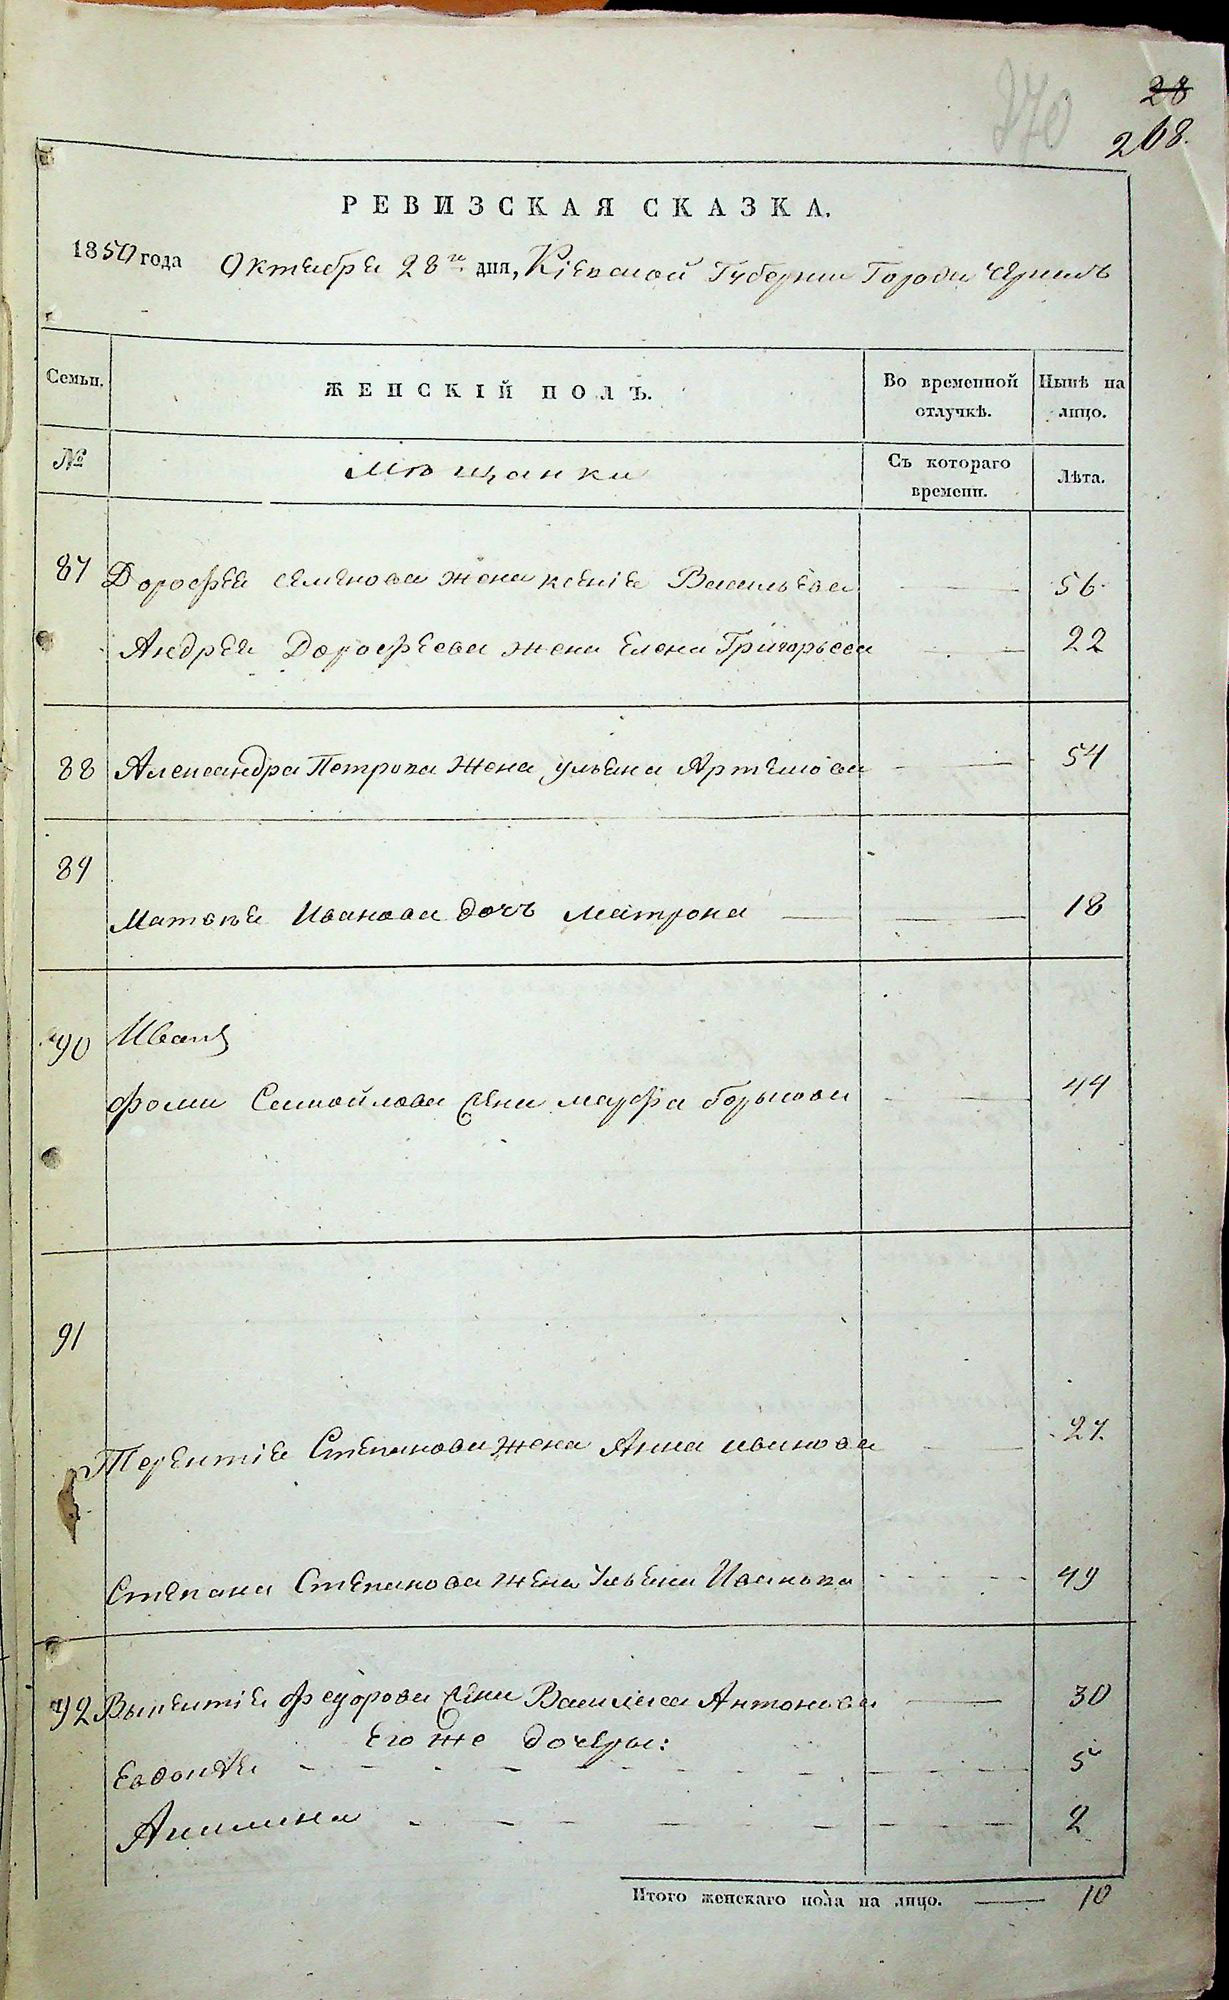 270
28
268.
РЕВИЗСКАЯ СКАЗКА.
1850 года Октября 28го дня, Кіевской Губерніи Города
Семьи. ЖЕНСКІЙ ПОЛЪ. Во временной отлучкѣ. Нынѣ на лицо.
№ Мѣщанки Съ котораго времени. Лѣта.
87 Дорофея Семенова жена Ксенія Васильева — 56
Андрея Дорофеева жена Елена Григорьева — 22
88 Александра Петрова жена Ульяна Артемова — 54
89
Матвѣя Иванова дочь Матрона — 18
90 Иванъ
Фомы Самойлова жена Марфа — 44
91
Терентія Степанова жена Анна Иванова — 27
Степана Степанова жена Ульяна Иванова — 49
92 Викентія Федорова жена Василиса Антонова — 30
Его же дочери:
Евдокія — 5
Акилина — 2
Итого женскаго пола на лицо. — 10